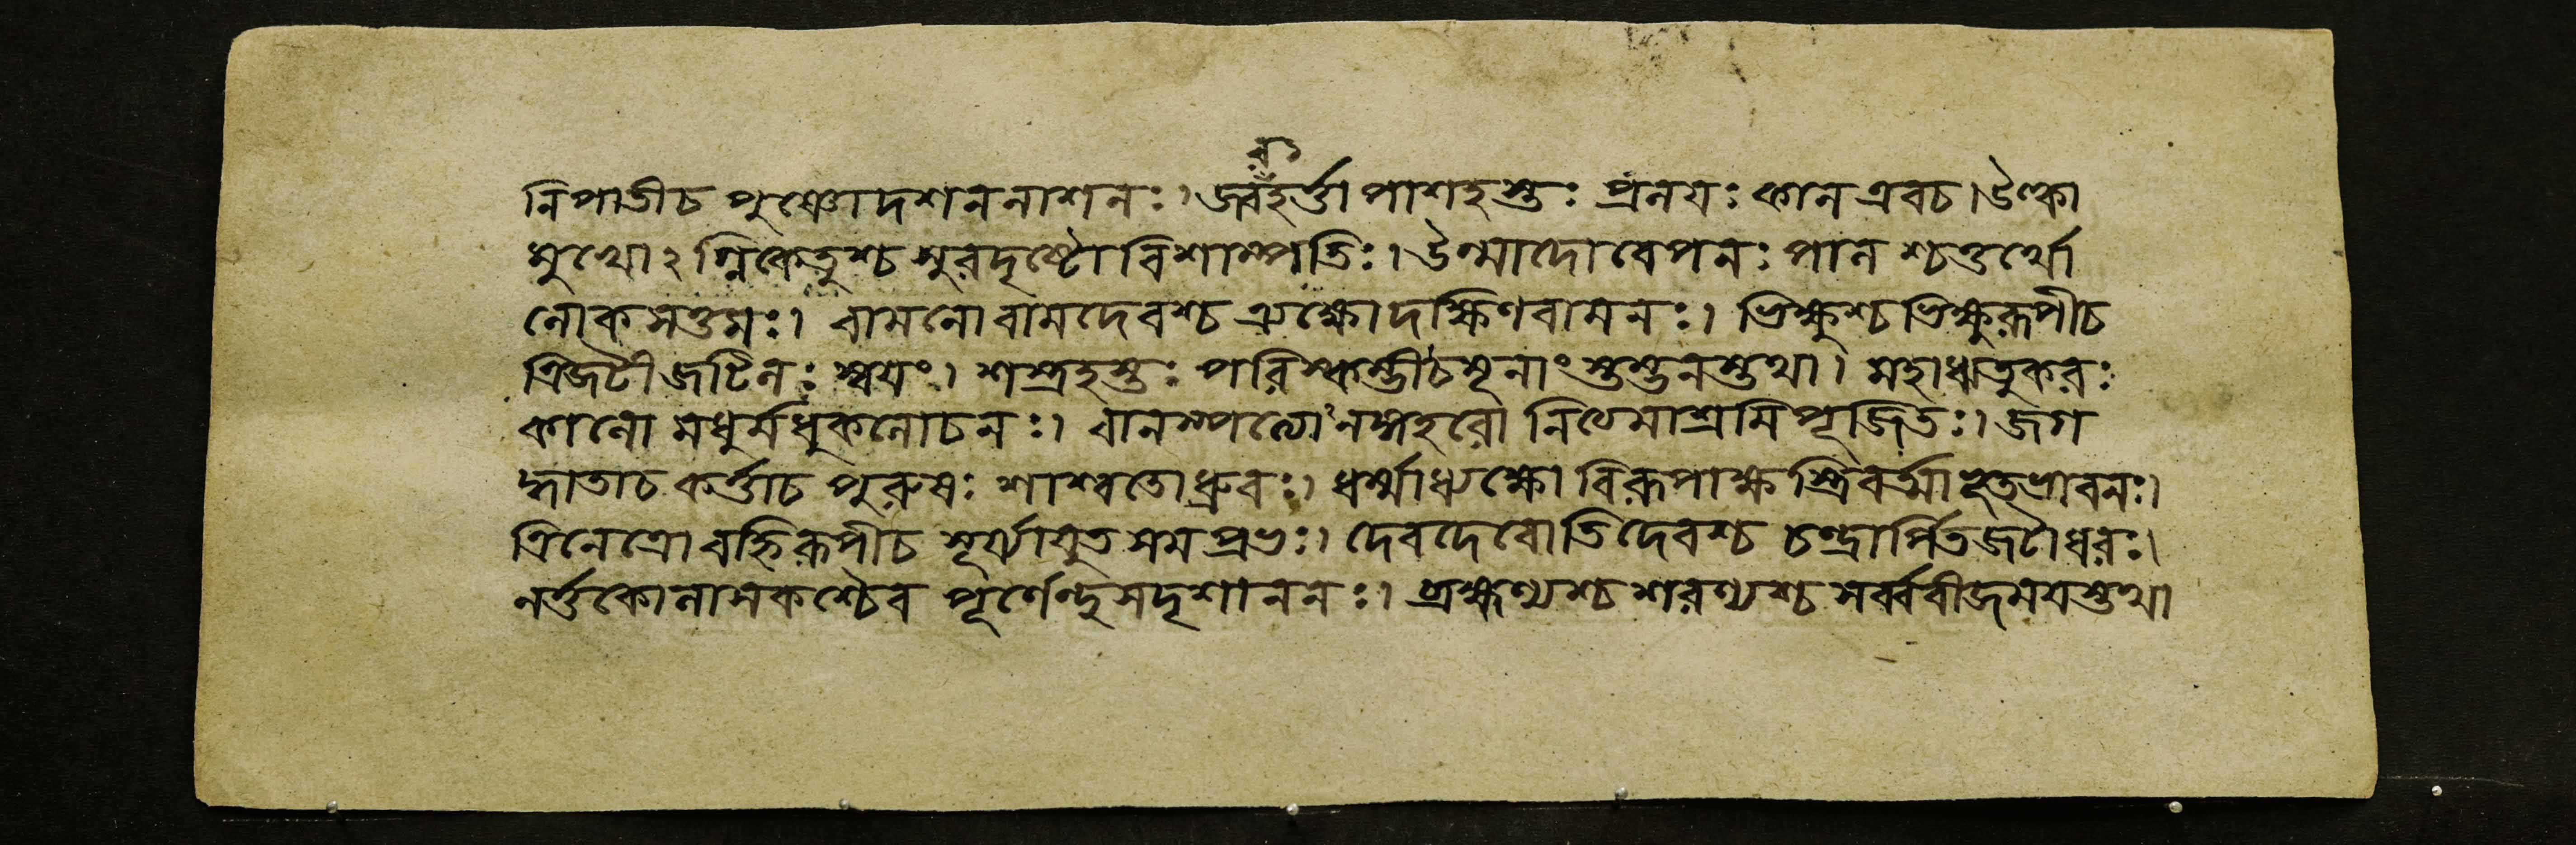 নিপাতীচ পুষ্ণোদশননাশনঃ। জ্বরহর্ত্তা পাশহস্তঃ প্রলয়ঃ কাল এবচ। উল্কা
মুখো২গ্নিকেতুশ্চ সুরদৃষ্টো বিশাম্পতিঃ। উন্মাদো বেপনঃ পান শ্চতুর্থো
লোকসত্তমঃ। বামনো বামদেবশ্চ প্রুক্ষো দক্ষিণবামনঃ। ভিক্ষুশ্চ ভিক্ষুরূপীচ
ত্রিজটী জটিলঃ স্বয়ং। শস্ত্রহস্তঃ পরিস্কন্তীচসৃনাং শুস্তনস্তথা। মহাধাতুকরঃ
কালো মধুর্মধুকলোচনঃ। বানস্পত্যো নমহরো নিত্যমাশ্রমি পূজিতঃ। জগ
দ্ধাতাচ কর্ত্তাচ পুরুষঃ শাশ্বতো ধ্রুবঃ। ধর্ম্মাধ্যক্ষো বিরূপাক্ষ স্ত্রিবর্ত্মা হূতভাবনঃ।
ত্রিনেত্রো বহ্নিরূপীচ সূর্য্যাযুত সমপ্রভঃ। দেবদেবোতিদেবশ্চ চন্দ্রার্পিতজটাধরঃ।
নর্ত্তকোলাসকশ্চৈব পূর্ণেন্দুসদৃশাননঃ। ব্রহ্মণ্যশ্চ শরণ্যশ্চ সর্ব্ববীজময়স্তথা